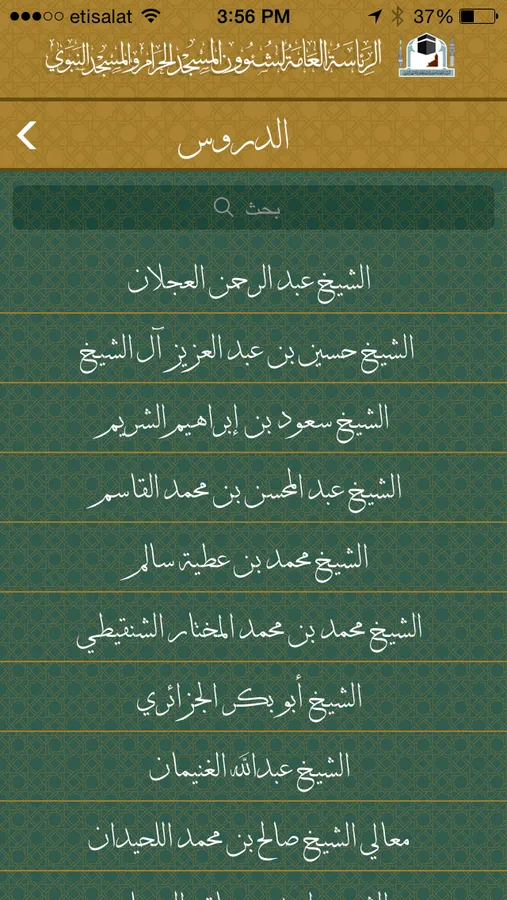 etisalat 3:56 PM 37%
الرئاسة العامة لشئوون المسجد الحرام والمسجد النبوي
الدروس
بحث
الشيخ عبد الرحمن العجلان
الشيخ حسين بن عبد العزيز آل الشيخ
الشيخ سعود بن إبراهيم الشريم
الشيخ عبد المحسن بن محمد القاسم
الشيخ محمد بن عطية سالم
الشيخ محمد بن محمد المختار الشنقيطي
الشيخ أبو بكر الجزائري
الشيخ عبدالله الغنيمان
معالي الشيخ صالح بن محمد اللحيدان